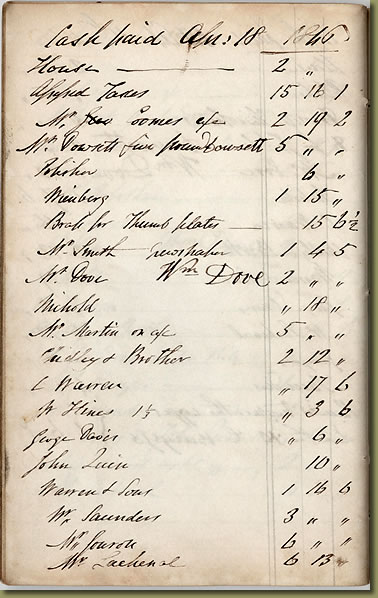 Cash paid Apr: 18 1846
House — 2 "
Assessed Taxes 15 12 1
Mr Soomes a/c 2 19 2
Mr Dowsett five pound Dowsett 5 " "
Polisher 6 "
Wienberg 1 15 "
Brass for Thumb plates — 15 6½
Mr Smith 1 4 5
Mr Dove Wm Dove 2 "
Nickold " 18 "
Mr Martin on a/c 5 " "
& Brother 2 12 "
C Warren " 17 6
W Hines 1½ " 3 6
George Davis " 6 "
John 10 "
Warren & Sons 1 16 6
Mr Saunders 3 " "
Mr 6 " "
Mr Lachenal 6 13 "